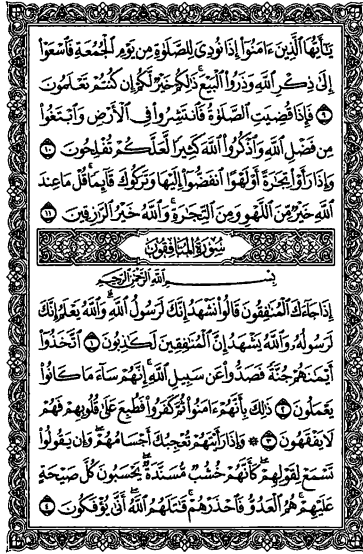 يَٰٓأَيُّهَا ٱلَّذِينَ ءَامَنُوٓا۟ إِذَا نُودِىَ لِلصَّلَوٰةِ مِن يَوْمِ ٱلْجُمُعَةِ فَٱسْعَوْا۟
إِلَىٰ ذِكْرِ ٱللَّهِ وَذَرُوا۟ ٱلْبَيْعَ ۚ ذَٰلِكُمْ خَيْرٌ لَّكُمْ إِن كُنتُمْ تَعْلَمُونَ
٩ فَإِذَا قُضِيَتِ ٱلصَّلَوٰةُ فَٱنتَشِرُوا۟ فِى ٱلْأَرْضِ وَٱبْتَغُوا۟
مِن فَضْلِ ٱللَّهِ وَٱذْكُرُوا۟ ٱللَّهَ كَثِيرًا لَّعَلَّكُمْ تُفْلِحُونَ ١٠
وَإِذَا رَأَوْا۟ تِجَٰرَةً أَوْ لَهْوًا ٱنفَضُّوٓا۟ إِلَيْهَا وَتَرَكُوكَ قَآئِمًا ۚ قُلْ مَا عِندَ
ٱللَّهِ خَيْرٌ مِّنَ ٱللَّهْوِ وَمِنَ ٱلتِّجَٰرَةِ ۚ وَٱللَّهُ خَيْرُ ٱلرَّٰزِقِينَ ١١
سُورَةُ المُنَافِقُونَ
بِسْمِ ٱللَّهِ ٱلرَّحْمَٰنِ ٱلرَّحِيمِ
إِذَا جَآءَكَ ٱلْمُنَٰفِقُونَ قَالُوا۟ نَشْهَدُ إِنَّكَ لَرَسُولُ ٱللَّهِ ۗ وَٱللَّهُ يَعْلَمُ إِنَّكَ
لَرَسُولُهُۥ وَٱللَّهُ يَشْهَدُ إِنَّ ٱلْمُنَٰفِقِينَ لَكَٰذِبُونَ ١ ٱتَّخَذُوٓا۟
أَيْمَٰنَهُمْ جُنَّةً فَصَدُّوا۟ عَن سَبِيلِ ٱللَّهِ ۚ إِنَّهُمْ سَآءَ مَا كَانُوا۟
يَعْمَلُونَ ٢ ذَٰلِكَ بِأَنَّهُمْ ءَامَنُوا۟ ثُمَّ كَفَرُوا۟ فَطُبِعَ عَلَىٰ قُلُوبِهِمْ فَهُمْ
لَا يَفْقَهُونَ ٣ ۞ وَإِذَا رَأَيْتَهُمْ تُعْجِبُكَ أَجْسَامُهُمْ ۖ وَإِن يَقُولُوا۟
تَسْمَعْ لِقَوْلِهِمْ ۖ كَأَنَّهُمْ خُشُبٌ مُّسَنَّدَةٌ ۖ يَحْسَبُونَ كُلَّ صَيْحَةٍ
عَلَيْهِمْ ۚ هُمُ ٱلْعَدُوُّ فَٱحْذَرْهُمْ ۚ قَٰتَلَهُمُ ٱللَّهُ ۖ أَنَّىٰ يُؤْفَكُونَ ٤